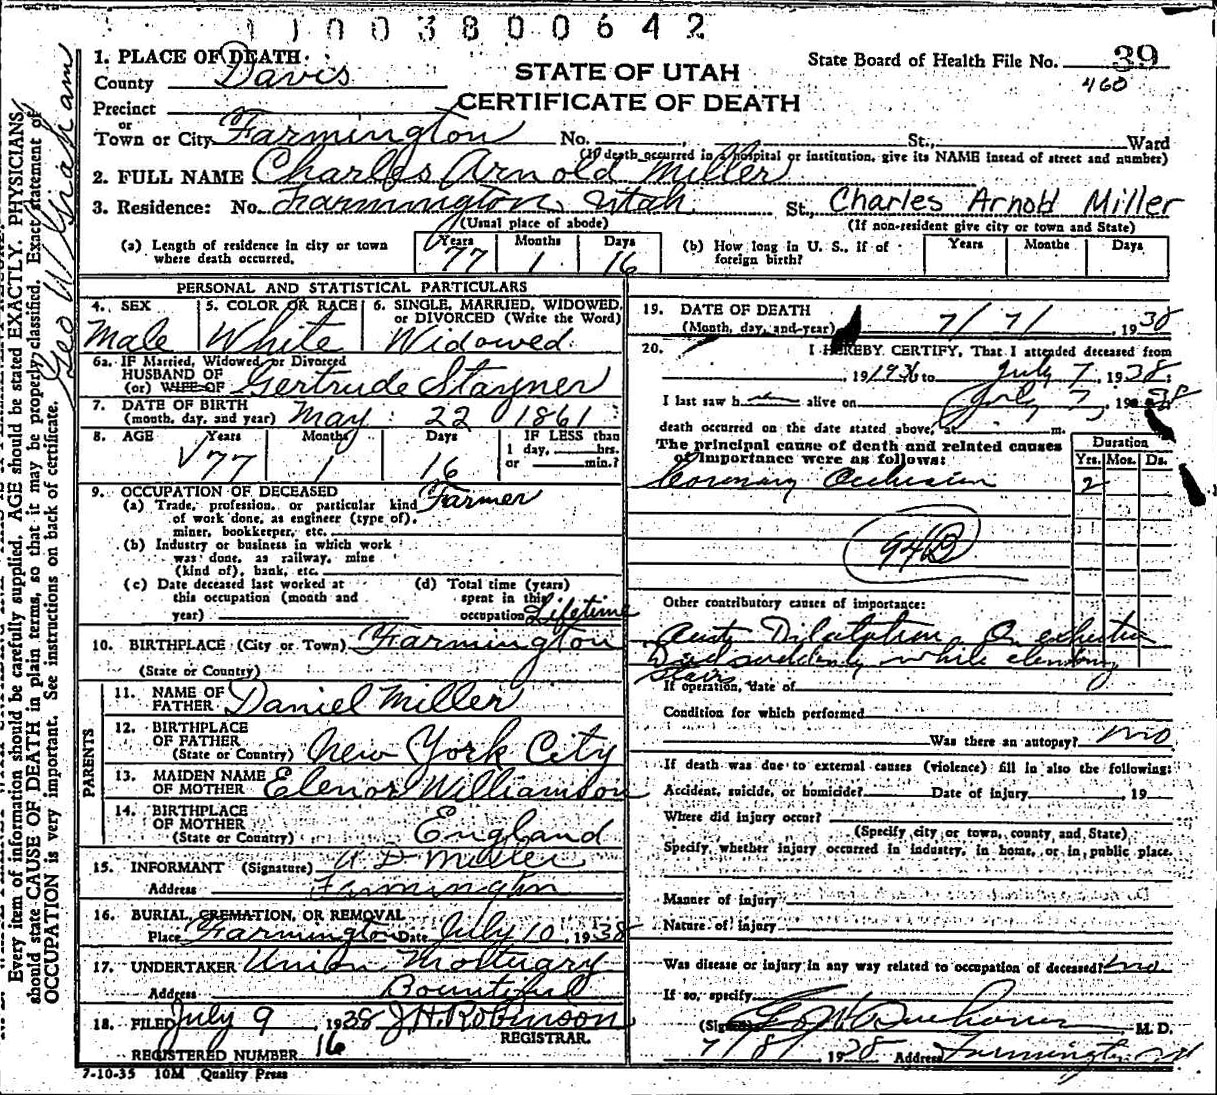 1 1 0 0 3 8 0 0 6 4 2
1. PLACE OF DEATH
County Davis
STATE OF UTAH
CERTIFICATE OF DEATH
State Board of Health File No. 39
460
Precinct
or
Town or City Farmington No. St., Ward
(If death occurred in a hospital or institution, give its NAME insead of street and number)
2. FULL NAME Charles Arnold Miller
3. Residence: No. Farmington Utah St., Charles Arnold Miller
(Usual place of abode) (If non-resident give city or town and State)
(a) Length of residence in city or town where death occurred. Years 77 Months 1 Days 16
(b) How long in U. S., if of foreign birth? Years Months Days
PERSONAL AND STATISTICAL PARTICULARS
4. SEX Male
5. COLOR OR RACE White
6. SINGLE, MARRIED, WIDOWED, or DIVORCED (Write the Word) Widowed
6a. IF Married, Widowed or Divorced
HUSBAND OF
(or) WIFE OF Gertrude Stayner
7. DATE OF BIRTH
(month, day, and year) May 22 1861
8. AGE Years 77 Months 1 Days 16
IF LESS than
1 day, hrs.
or min.?
9. OCCUPATION OF DECEASED
(a) Trade, profession, or particular kind Farmer
of work done, as engineer (type of),
miner, bookkeeper, etc.
(b) Industry or business in which work
was done, as railway, mine
(kind of), bank, etc.
(c) Date deceased last worked at
this occupation (month and
year)
(d) Total time (years)
spent in this
occupation Lifetime
10. BIRTHPLACE (City or Town) Farmington
(State or Country)
PARENTS
11. NAME OF
FATHER Daniel Miller
12. BIRTHPLACE
OF FATHER
(State or Country) New York City
13. MAIDEN NAME
OF MOTHER Elenor Williamson
14. BIRTHPLACE
OF MOTHER
(State or Country) England
15. INFORMANT (Signature) Miller
Address Farmington
16. BURIAL, CREMATION, OR REMOVAL
Place Farmington Date July 10, 1938
17. UNDERTAKER Union Mortuary
Address Bountiful
18. FILED July 9, 1938 J.H. Robinson
REGISTRAR.
REGISTERED NUMBER 16
7-10-35 10M Quality Press
19. DATE OF DEATH
(Month, day, and year) 7/7/, 1938
20. I HEREBY CERTIFY, That I attended deceased from
, 19 1936 to July 7, 1938;
I last saw h alive on July 7, 1938
death occurred on the date stated above, at m.
The principal cause of death and related causes
of importance were as follows:
Duration
Yrs. Mos. Ds.
Coronary Occlusion 2
94B
Other contributory causes of importance:
Acute Dilatation On exertion
Died suddenly while climbing
Stairs
If operation, date of
Condition for which performed
Was there an autopsy? no
If death was due to external causes (violence) fill in also the following:
Accident, suicide, or homicide? Date of injury , 19
Where did injury occur?
(Specify city or town, county, and State)
Specify, whether injury occurred in industry, in home, or in public place.
Manner of injury
Nature of injury
Was disease or injury in any way related to occupation of deceased? no
If so, specify
(Signed) M. D.
7/8/, 1938 Address Farmington
Every item of information should be carefully supplied. AGE should be stated EXACTLY. PHYSICIANS
should state CAUSE OF DEATH in plain terms, so that it may be properly classified. Exact statement of
OCCUPATION is very important. See instructions on back of certificate.